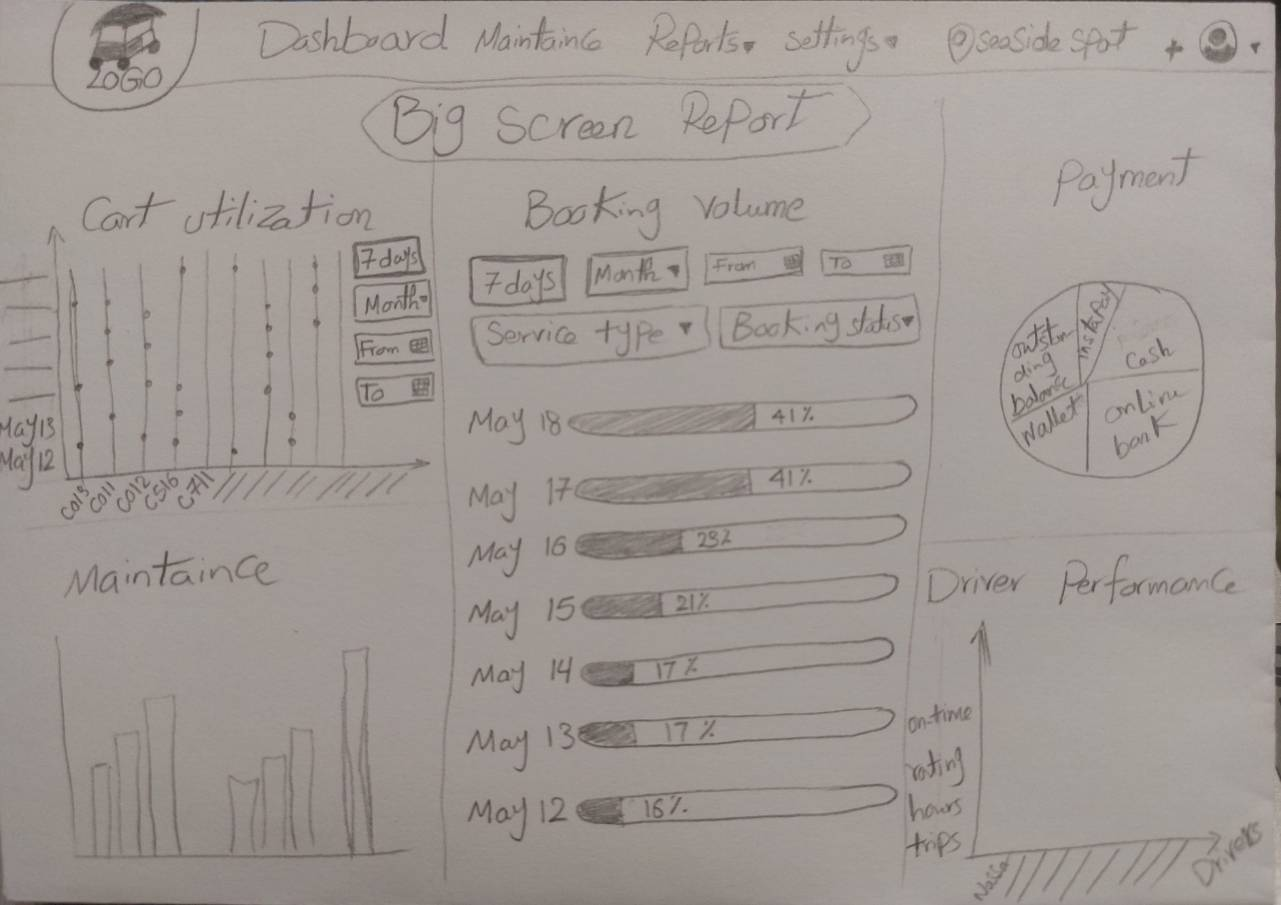 LOGO
Dashboard Maintaince Reports Settings seaside spot +
Big Screen Report
Cart utilization
7 days
Month
From
To
May 13
May 12
C013 C011 C012 C516 C711
Maintaince
Booking Volume
7 days Month From To
Service type Booking status
May 18 41%
May 17 41%
May 16 23%
May 15 21%
May 14 17%
May 13 17%
May 12 16%
Payment
outstan
ding
balance
instapay
cash
wallet
online
bank
Driver Performance
on-time
rating
hours
trips
Drivers